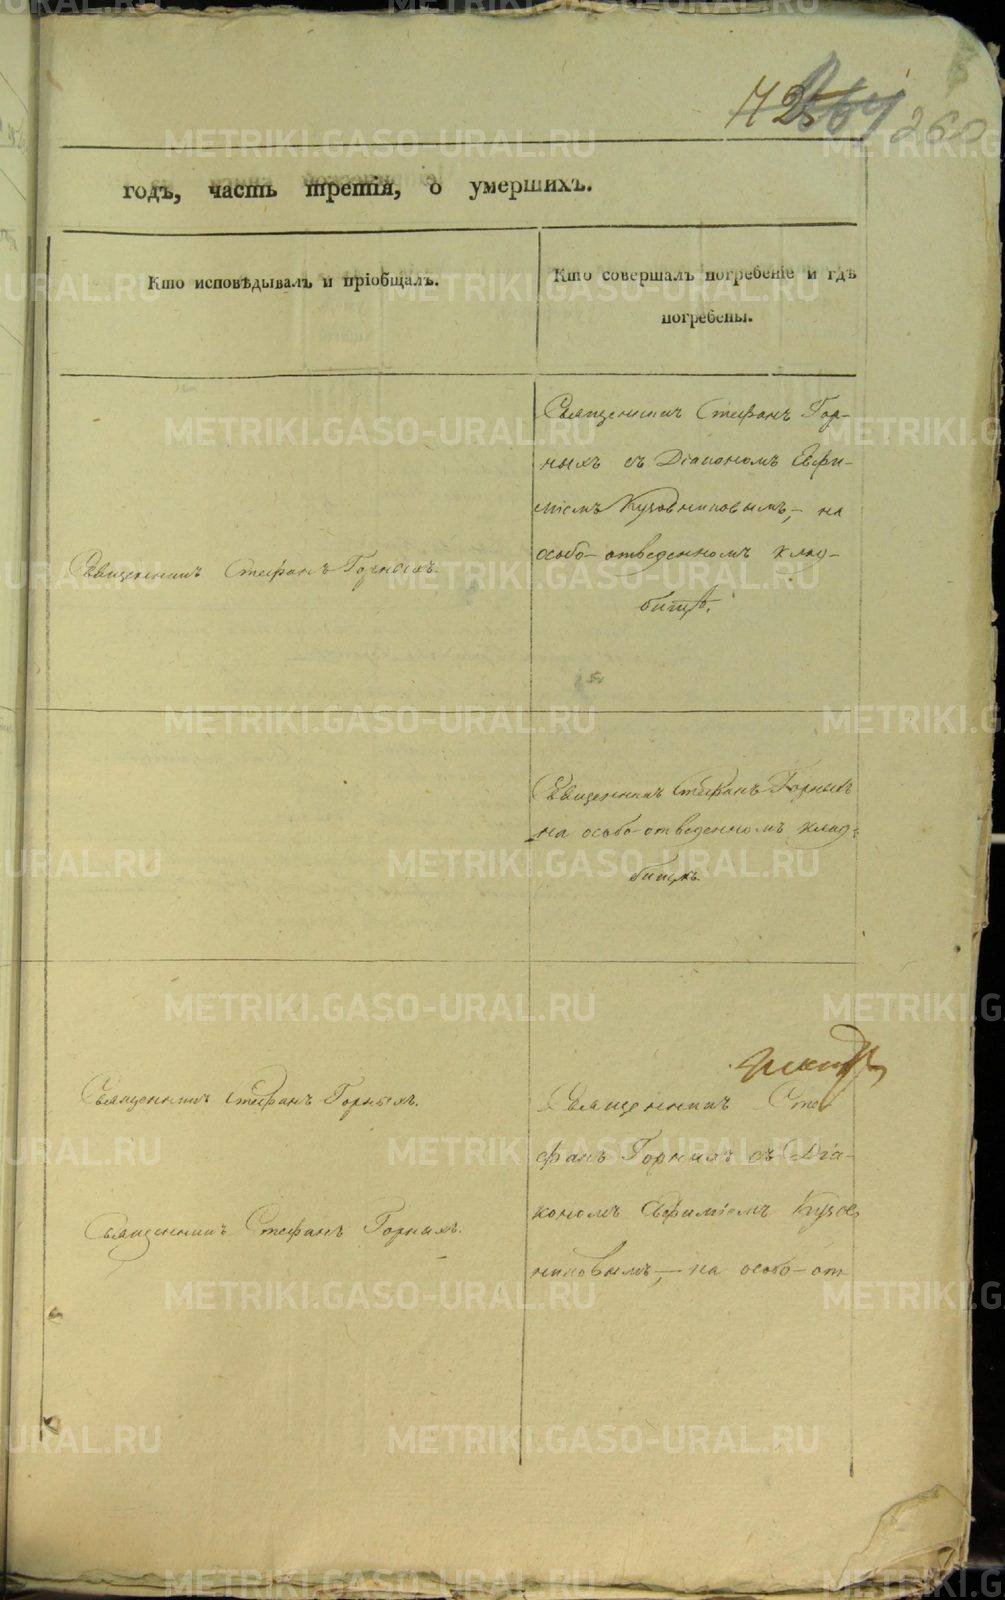 260
годъ, часть третія, о умершихъ.
Кто исповѣдывалъ и пріобщалъ.
Кто совершалъ погребеніе и гдѣ
погребены.
Священникъ Стефанъ Гор-
ныхъ съ Діакономъ Евфи-
міемъ Кузовниковымъ, на
особо-отведенномъ клад-
бищѣ.
Священникъ Стефанъ Горныхъ.
Священникъ Стефанъ Горныхъ
на особо-отведенномъ клад-
бищѣ.
Священникъ Стефанъ Горныхъ.
Священникъ Стефанъ Горныхъ.
Священникъ Сте
фанъ Горныхъ съ Діа-
кономъ Евфиміемъ Кузов
никовымъ, — на особо-от
METRIKI.GASO-URAL.RU